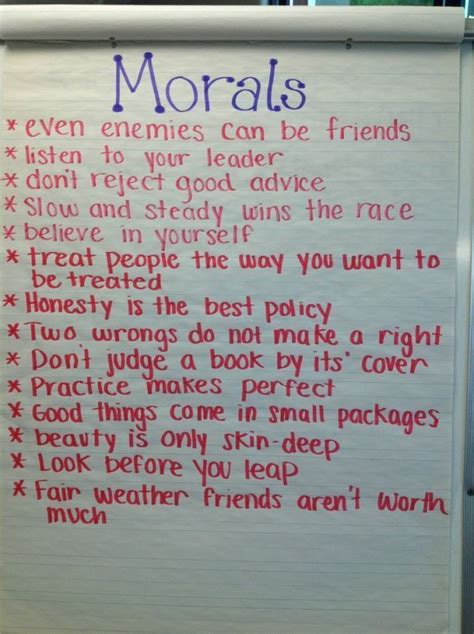 Morals
* even enemies can be friends
* listen to your leader
* don't reject good advice
* Slow and steady wins the race
* believe in yourself
* treat people the way you want to
be treated
* Honesty is the best policy
* Two wrongs do not make a right
* Don't judge a book by its' cover
* Practice makes perfect
* Good things come in small packages
* beauty is only skin-deep
* Look before you leap
* Fair weather friends aren't worth
much